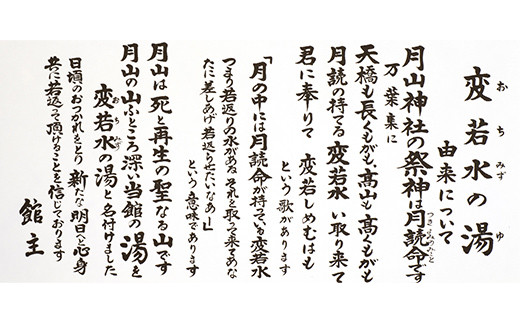 変若水の湯
おちみず ゆ
由来について
月山神社の祭神は月読命です
つきよみのみこと
万葉集に
天橋も長くもがも、高山も高くもがも
月読の持てる変若水い取り来て
君に奉りて 変若しめむはも
という歌があります
「月の中には月読命が持っている変若水
つまり若返りの水があるそれを取って来てあな
たに差しあげ若返らせたいなあー」
という意味であります
月山は死と再生の聖なる山です
月山の山ふところ深い当館の湯を
変若水の湯と名付けました
おちみず
日頃のおつかれをとり新たな明日へと心身
共に若返って頂けることを信じております
館主